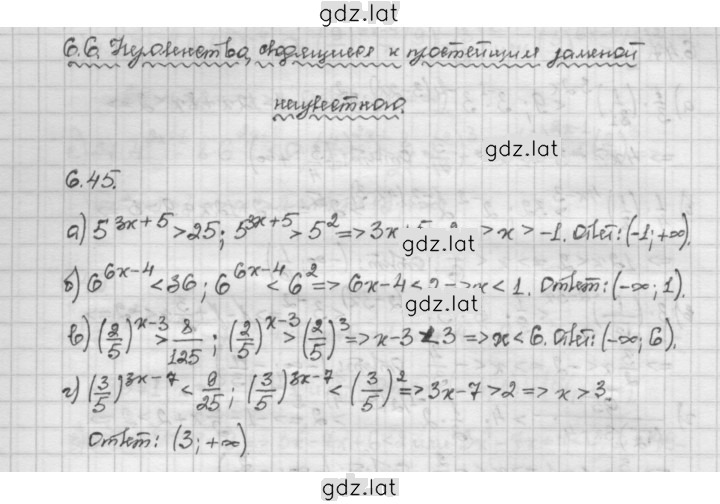 gdz.lat
6.6. Неравенства, сводящиеся к простейшим заменой
неизвестного.
gdz.lat
6.45.
а) 5^{3x+5} > 25; 5^{3x+5} > 5^2 => 3x+5 > 2 => x > -1. Ответ: (-1; +∞).
gdz.lat
б) 6^{6x-4} < 36; 6^{6x-4} < 6^2 => 6x-4 < 2 => x < 1. Ответ: (-∞; 1).
gdz.lat
в) (2/5)^{x-3} > 8/125; (2/5)^{x-3} > (2/5)^3 => x-3 < 3 => x < 6. Ответ: (-∞; 6).
г) (3/5)^{3x-7} < 9/25; (3/5)^{3x-7} < (3/5)^2 => 3x-7 > 2 => x > 3.
Ответ: (3; +∞)
gdz.lat